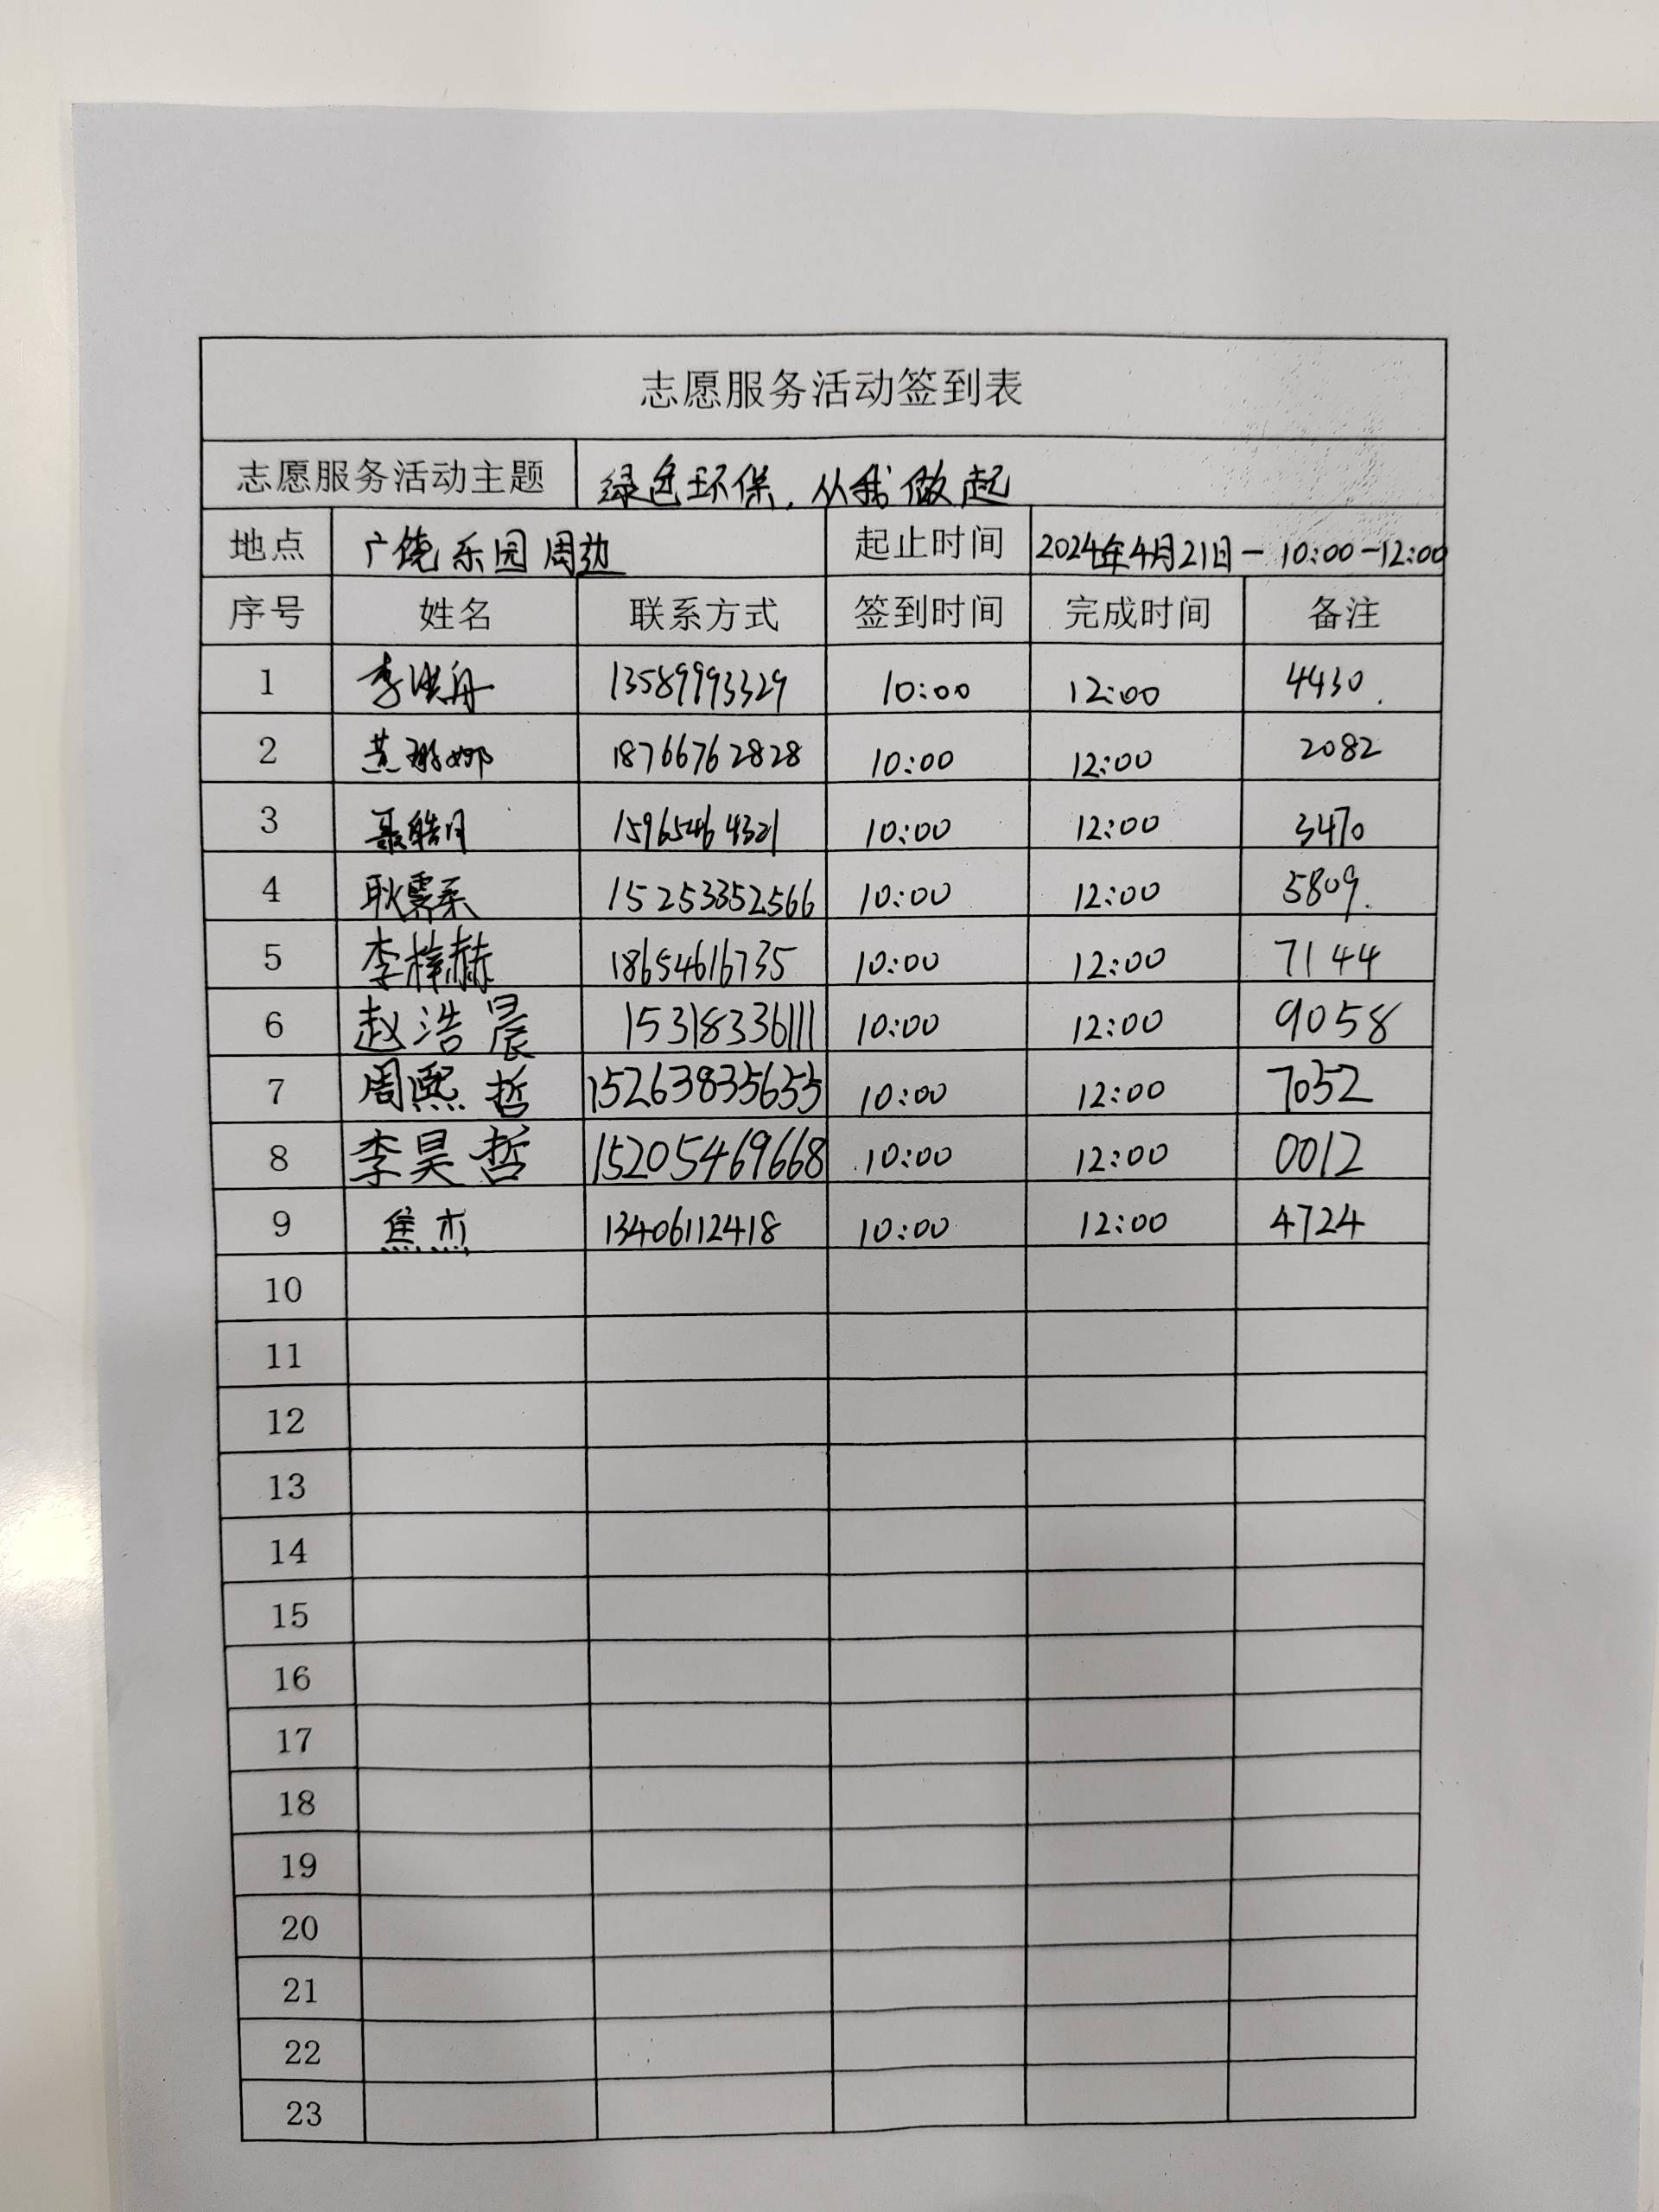 志愿服务活动签到表
志愿服务活动主题 绿色环保,从我做起
地点 广饶乐园周边 起止时间 2024年4月21日-10:00-12:00
序号 姓名 联系方式 签到时间 完成时间 备注
1 李洪舟 13589993329 10:00 12:00 4430.
2 18766762828 10:00 12:00 2082
3 聂皓月 15965464321 10:00 12:00 3470
4 耿霂系 15253352566 10:00 12:00 5809.
5 李梓赫 18654616735 10:00 12:00 7144
6 赵浩晨 15318336111 10:00 12:00 9058
7 周熙哲 15263835655 10:00 12:00 7052
8 李昊哲 15205469668 10:00 12:00 0012
9 焦杰 13406112418 10:00 12:00 4724
10
11
12
13
14
15
16
17
18
19
20
21
22
23